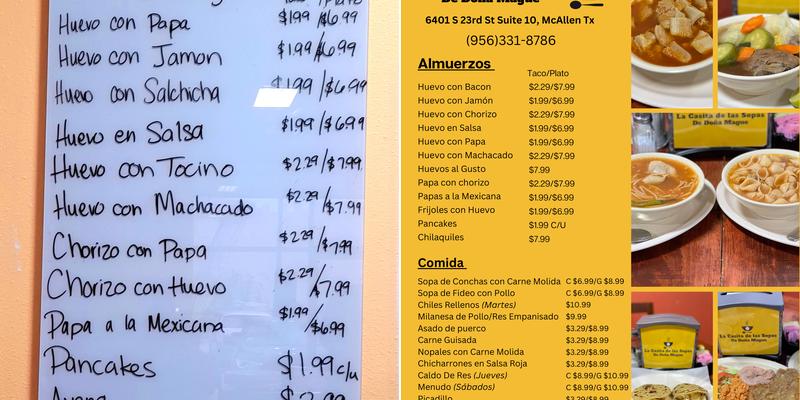 Huevo con Papa $1.99/$6.99
Huevo con Jamon $1.99/$6.99
Huevo con Salchicha $1.99/$6.99
Huevo en Salsa $1.99/$6.99
Huevo con Tocino $2.29/$7.99
Huevo con Machacado $2.29/$7.99
Chorizo con Papa $2.29/$7.99
Chorizo con Huevo $2.29/7.99
Papa a la Mexicana $1.99/$6.99
Pancakes $1.99 c/u
Avena
De Doña Mague
6401 S 23rd St Suite 10, McAllen Tx
(956)331-8786
Almuerzos
Taco/Plato
Huevo con Bacon $2.29/$7.99
Huevo con Jamón $1.99/$6.99
Huevo con Chorizo $2.29/$7.99
Huevo en Salsa $1.99/$6.99
Huevo con Papa $1.99/$6.99
Huevo con Machacado $2.29/$7.99
Huevos al Gusto $7.99
Papa con chorizo $2.29/$7.99
Papas a la Mexicana $1.99/$6.99
Frijoles con Huevo $1.99/$6.99
Pancakes $1.99 C/U
Chilaquiles $7.99
Comida
Sopa de Conchas con Carne Molida C $6.99/G $8.99
Sopa de Fideo con Pollo C $6.99/G $8.99
Chiles Rellenos (Martes) $10.99
Milanesa de Pollo/Res Empanisado $9.99
Asado de puerco $3.29/$8.99
Carne Guisada $3.29/$8.99
Nopales con Carne Molida $3.29/$8.99
Chicharrones en Salsa Roja $3.29/$8.99
Caldo De Res (Jueves) C $8.99/G $10.99
Menudo (Sábados) C $8.99/G $10.99
Picadillo $3.29/$8.99
La Casita de las Sopas
De Doña Mague
La Casita de las Sopas
De Doña Mague
La Casita de las Sopas
De Doña Mague